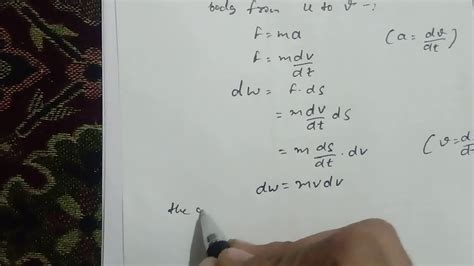 body from u to v -:
f = ma (a = dv/dt)
f = m dv/dt
dw = f . ds
= m dv/dt ds
= m ds/dt . dv (v = d
dw = mvdv
the